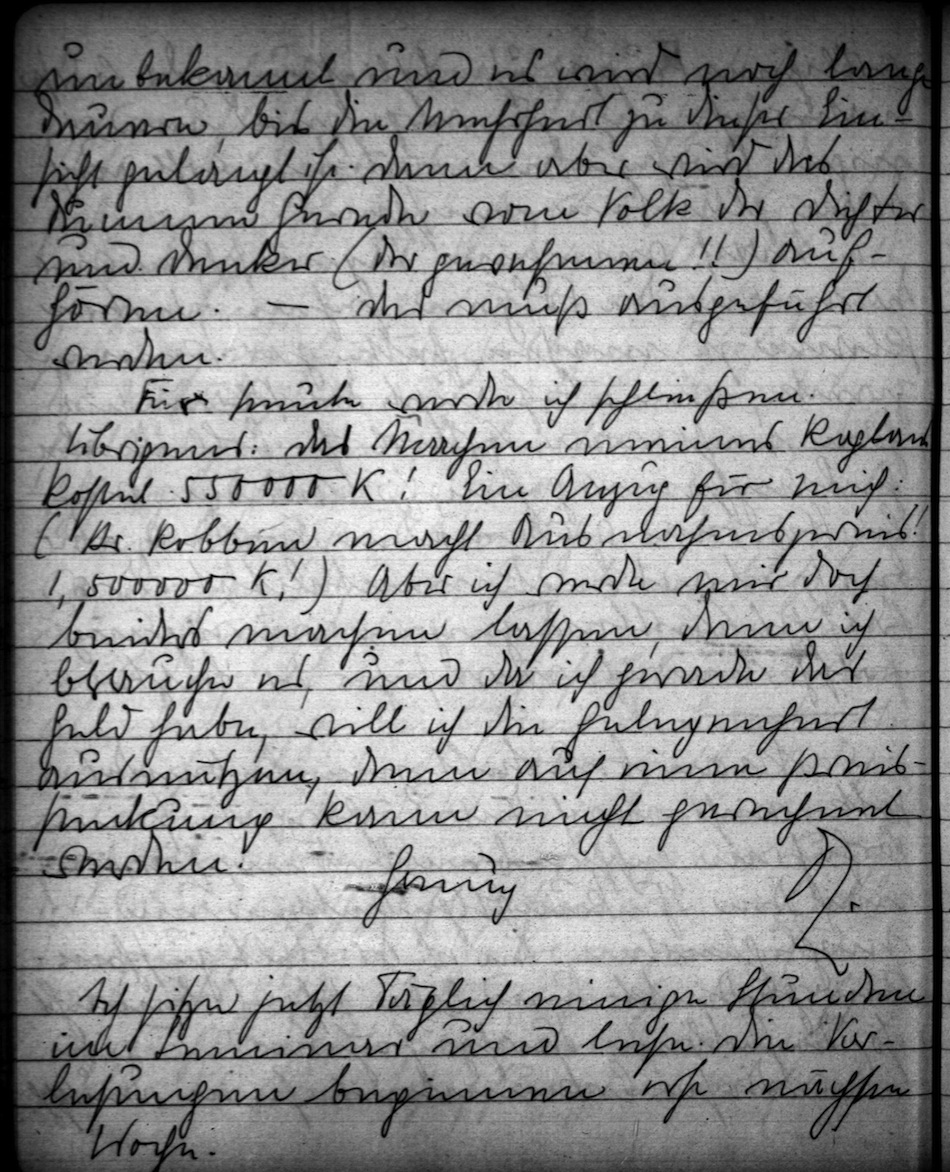 unbekannt und es wird noch lange
dauern, bis die Mehrheit zu dieser Ein-
sicht gelangt ist. dann aber wird das
dumme Gerede vom Volk der Dichter
und Denker (der gewesenen!!) auf-
hören. — das muß ausgeführt
werden.
Für heute werde ich schließen.
Übrigens: das Machen meines Raglans
kostet 550000 K! Ein Anzug für mich:
( Dr. macht Ausnahmspreis!
1,500000 K!) Aber ich werde mir doch
beides machen lassen, denn ich
brauche es, und da ich gerade das
Geld habe, will ich die Gelegenheit
ausnützen, denn auf eine Preis-
senkung kann nicht gerechnet
werden.
Genug
Ich sitze jetzt täglich einige Stunden
im Seminar und lese. die Vor-
lesungen beginnen erst nächste
Woche.